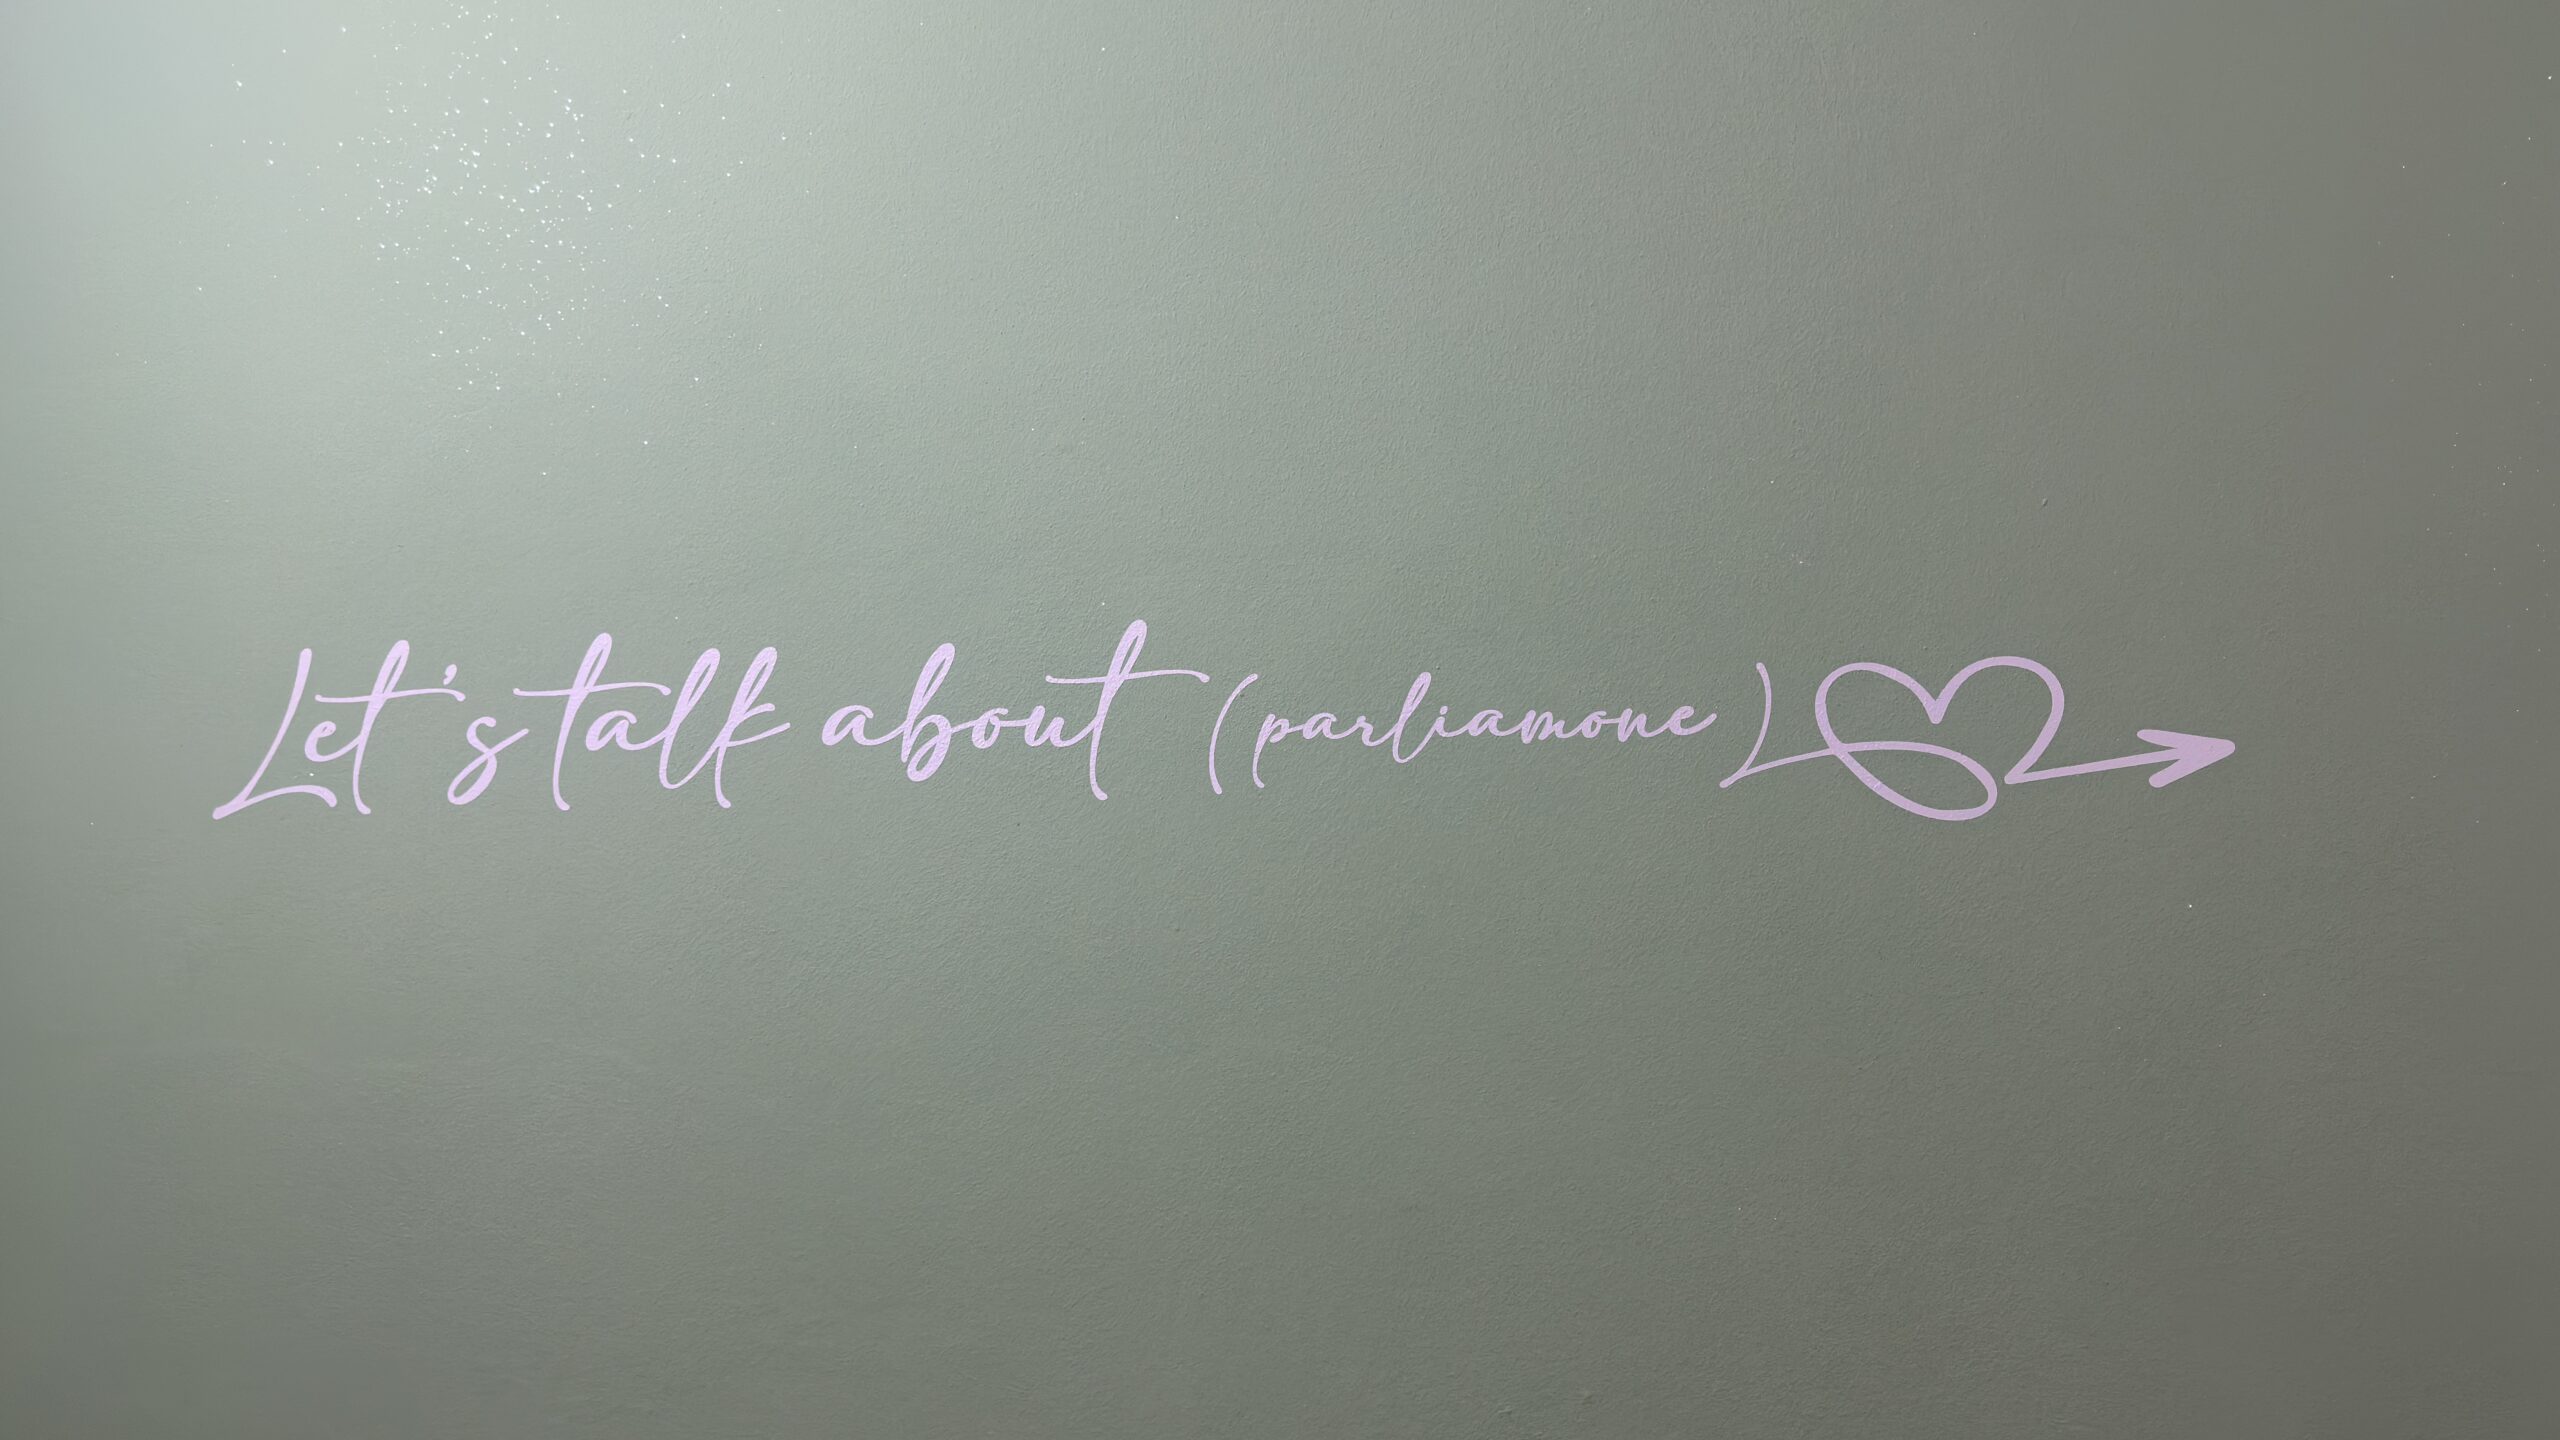 Let's talk about (parliamone)